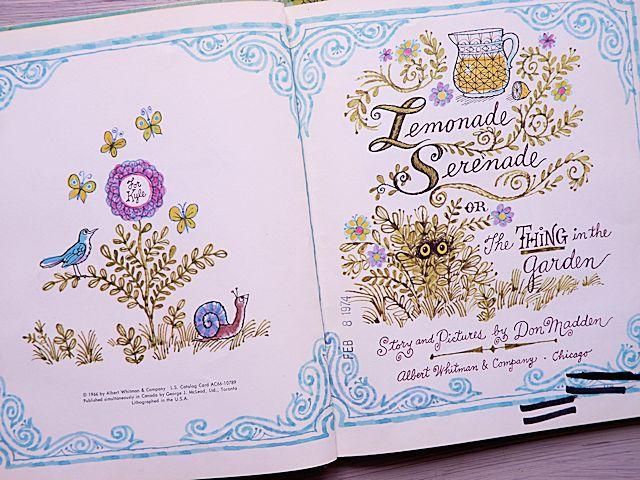 For
Kyle
© 1966 by Albert Whitman & Company L.S. Catalog Card AC66-10789
Published simultaneously in Canada by George J. McLeod, Ltd., Toronto
Lithographed in the U.S.A.
Lemonade
Serenade
OR
The THING in the
garden
FEB 8 1974
Story and Pictures by Don Madden
Albert Whitman & Company · Chicago